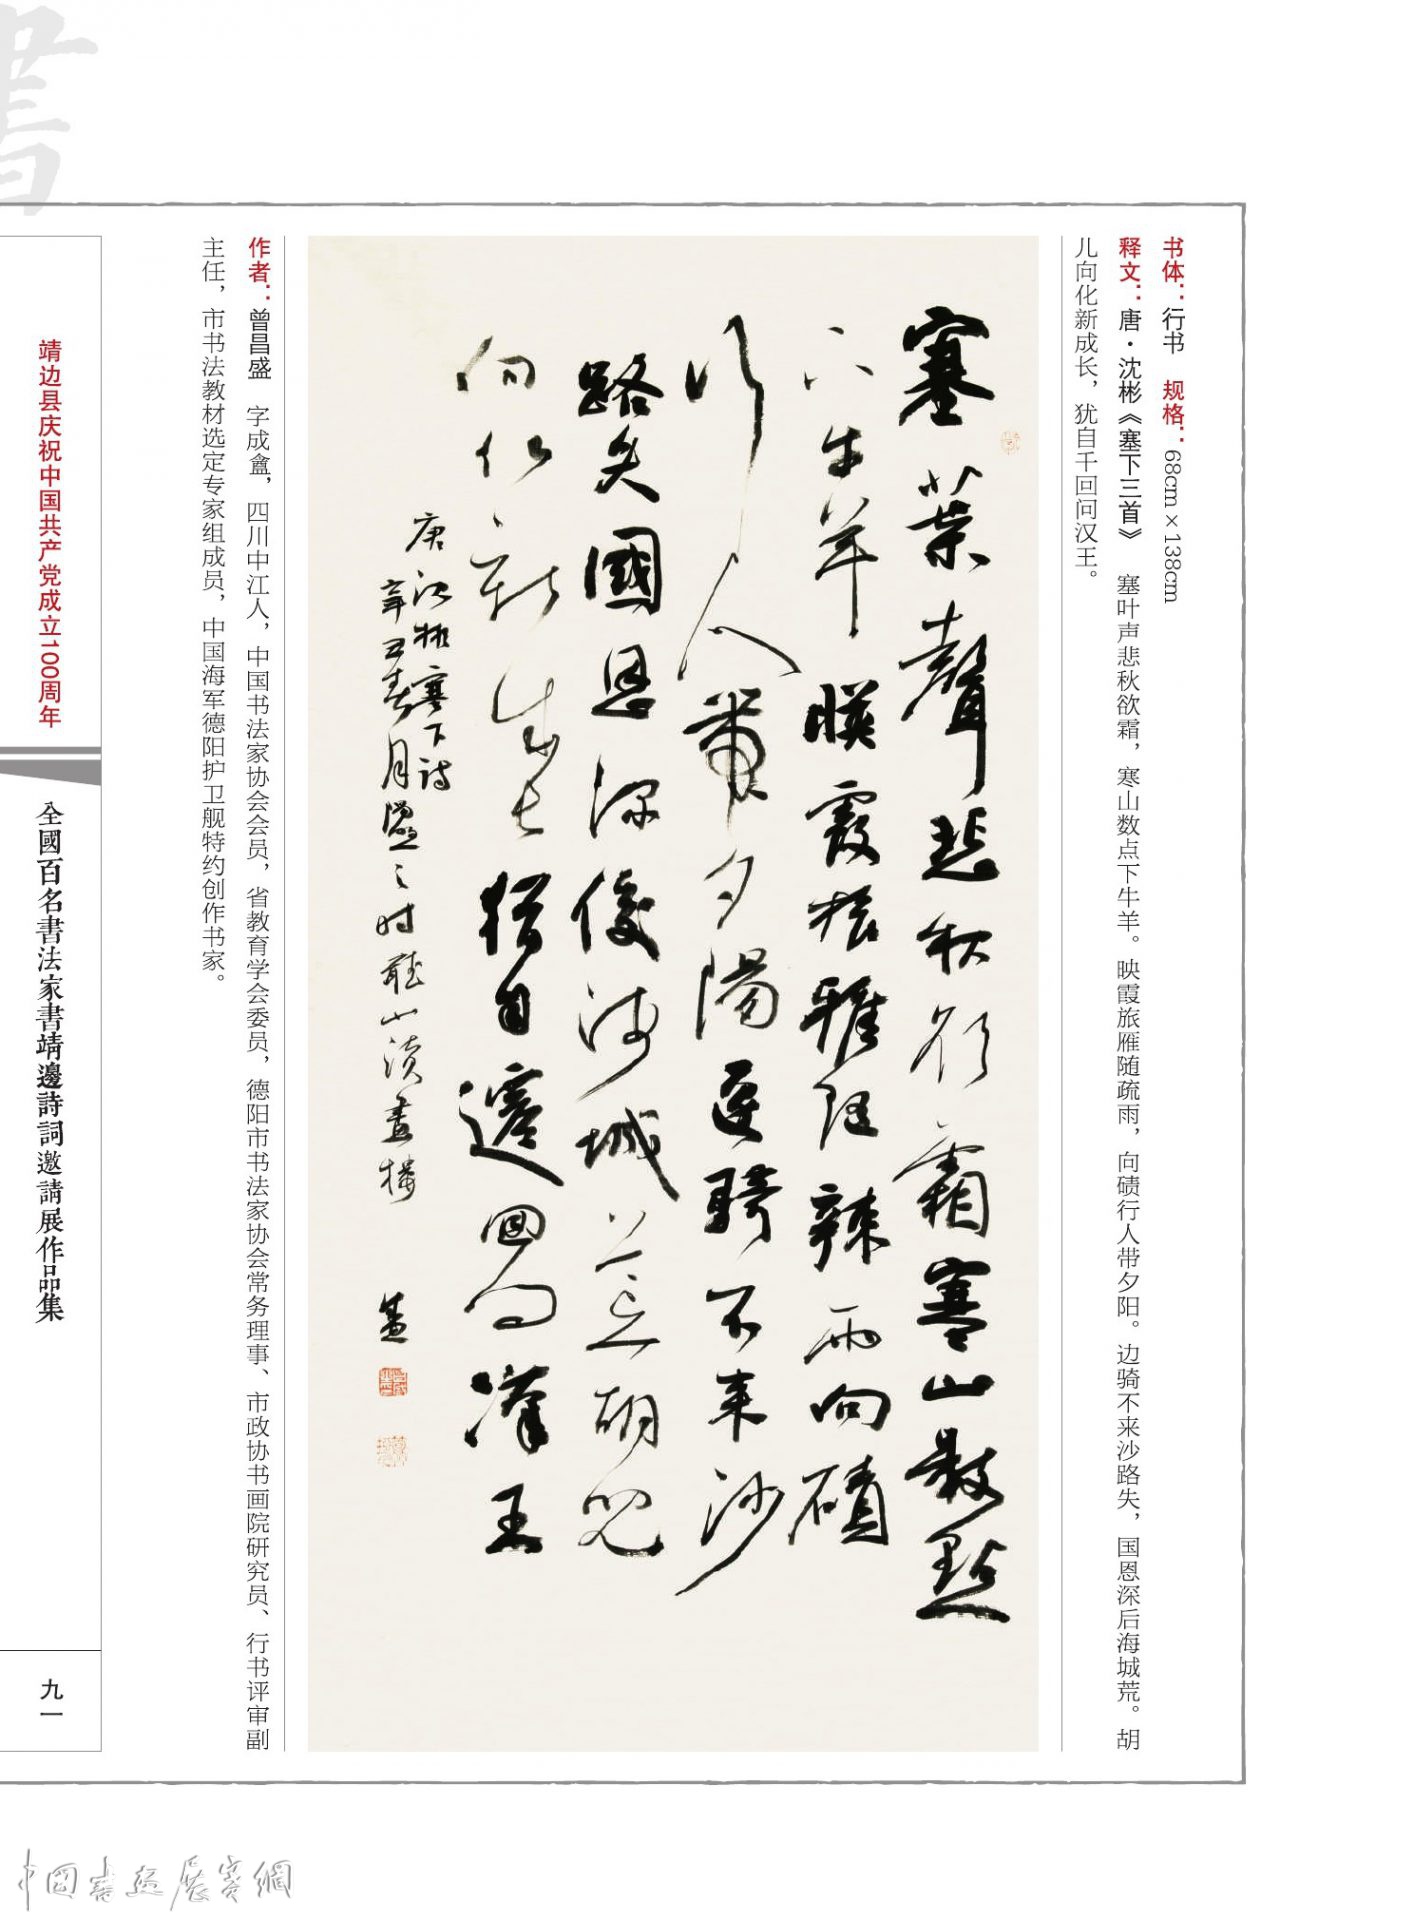 書
书体：行书　规格：68cm×138cm
释文：唐·沈彬《塞下三首》　塞叶声悲秋欲霜，寒山数点下牛羊。映霞旅雁随疏雨，向碛行人带夕阳。边骑不来沙路失，国恩深后海城荒。胡
儿向化新成长，犹自千回问汉王。
塞葉聲悲秋欲霜寒山數點
下牛羊暎霞旅雁随疎雨向磧
行人帶夕陽邊騎不来沙
路失國恩深後海城荒胡兒
向化新成長猶自千回问漢王
唐沈彬塞下诗
辛丑春月盛之时
作者：曾昌盛　字成盦，四川中江人，中国书法家协会会员，省教育学会委员，德阳市书法家协会常务理事、市政协书画院研究员、行书评审副
主任，市书法教材选定专家组成员，中国海军德阳护卫舰特约创作书家。
靖边县庆祝中国共产党成立100周年
全國百名書法家書靖邊詩詞邀請展作品集
九一
中國書画展赛網